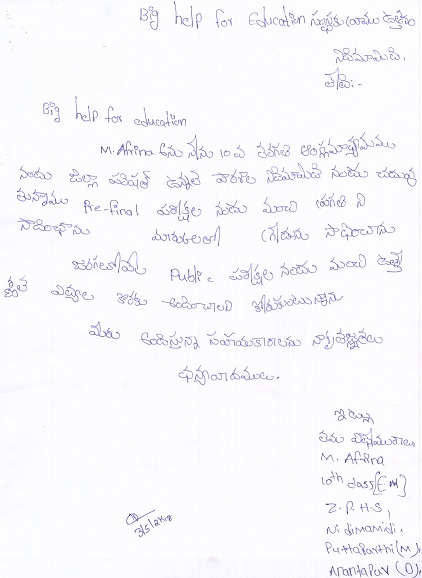 Big help for Education సంస్థకు రాయు ఉత్తరం
నిడిమామిడి.
తేది:-
Big help for education
M. Afrina అను నేను 10వ తరగతి ఆంగ్లమాధ్యమము
నందు జిల్లా పరిషత్ ఉన్నత పాఠశాల నిడిమామిడి నందు చదువు
తున్నాము Pre-Final పరీక్షల నందు మంచి ప్రగతి ని
సాధించాను మార్కులతో సాధించాను
జరగబోయే Public పరీక్షల నందు మంచి ఉత్తీ
ర్ణత కొరకు అందించాలని కోరుకుంటున్నాను
మీరు అందిస్తున్న సహాయకారాలకు కృతజ్ఞతలు
ధన్యవాదములు.
ఇట్లు
తమ విధేయురాలు
M. Afrina
10th class [E.M]
Z.P.H.S,
Nidimamidi,
Puttaparthi (M),
Anantapur (D),